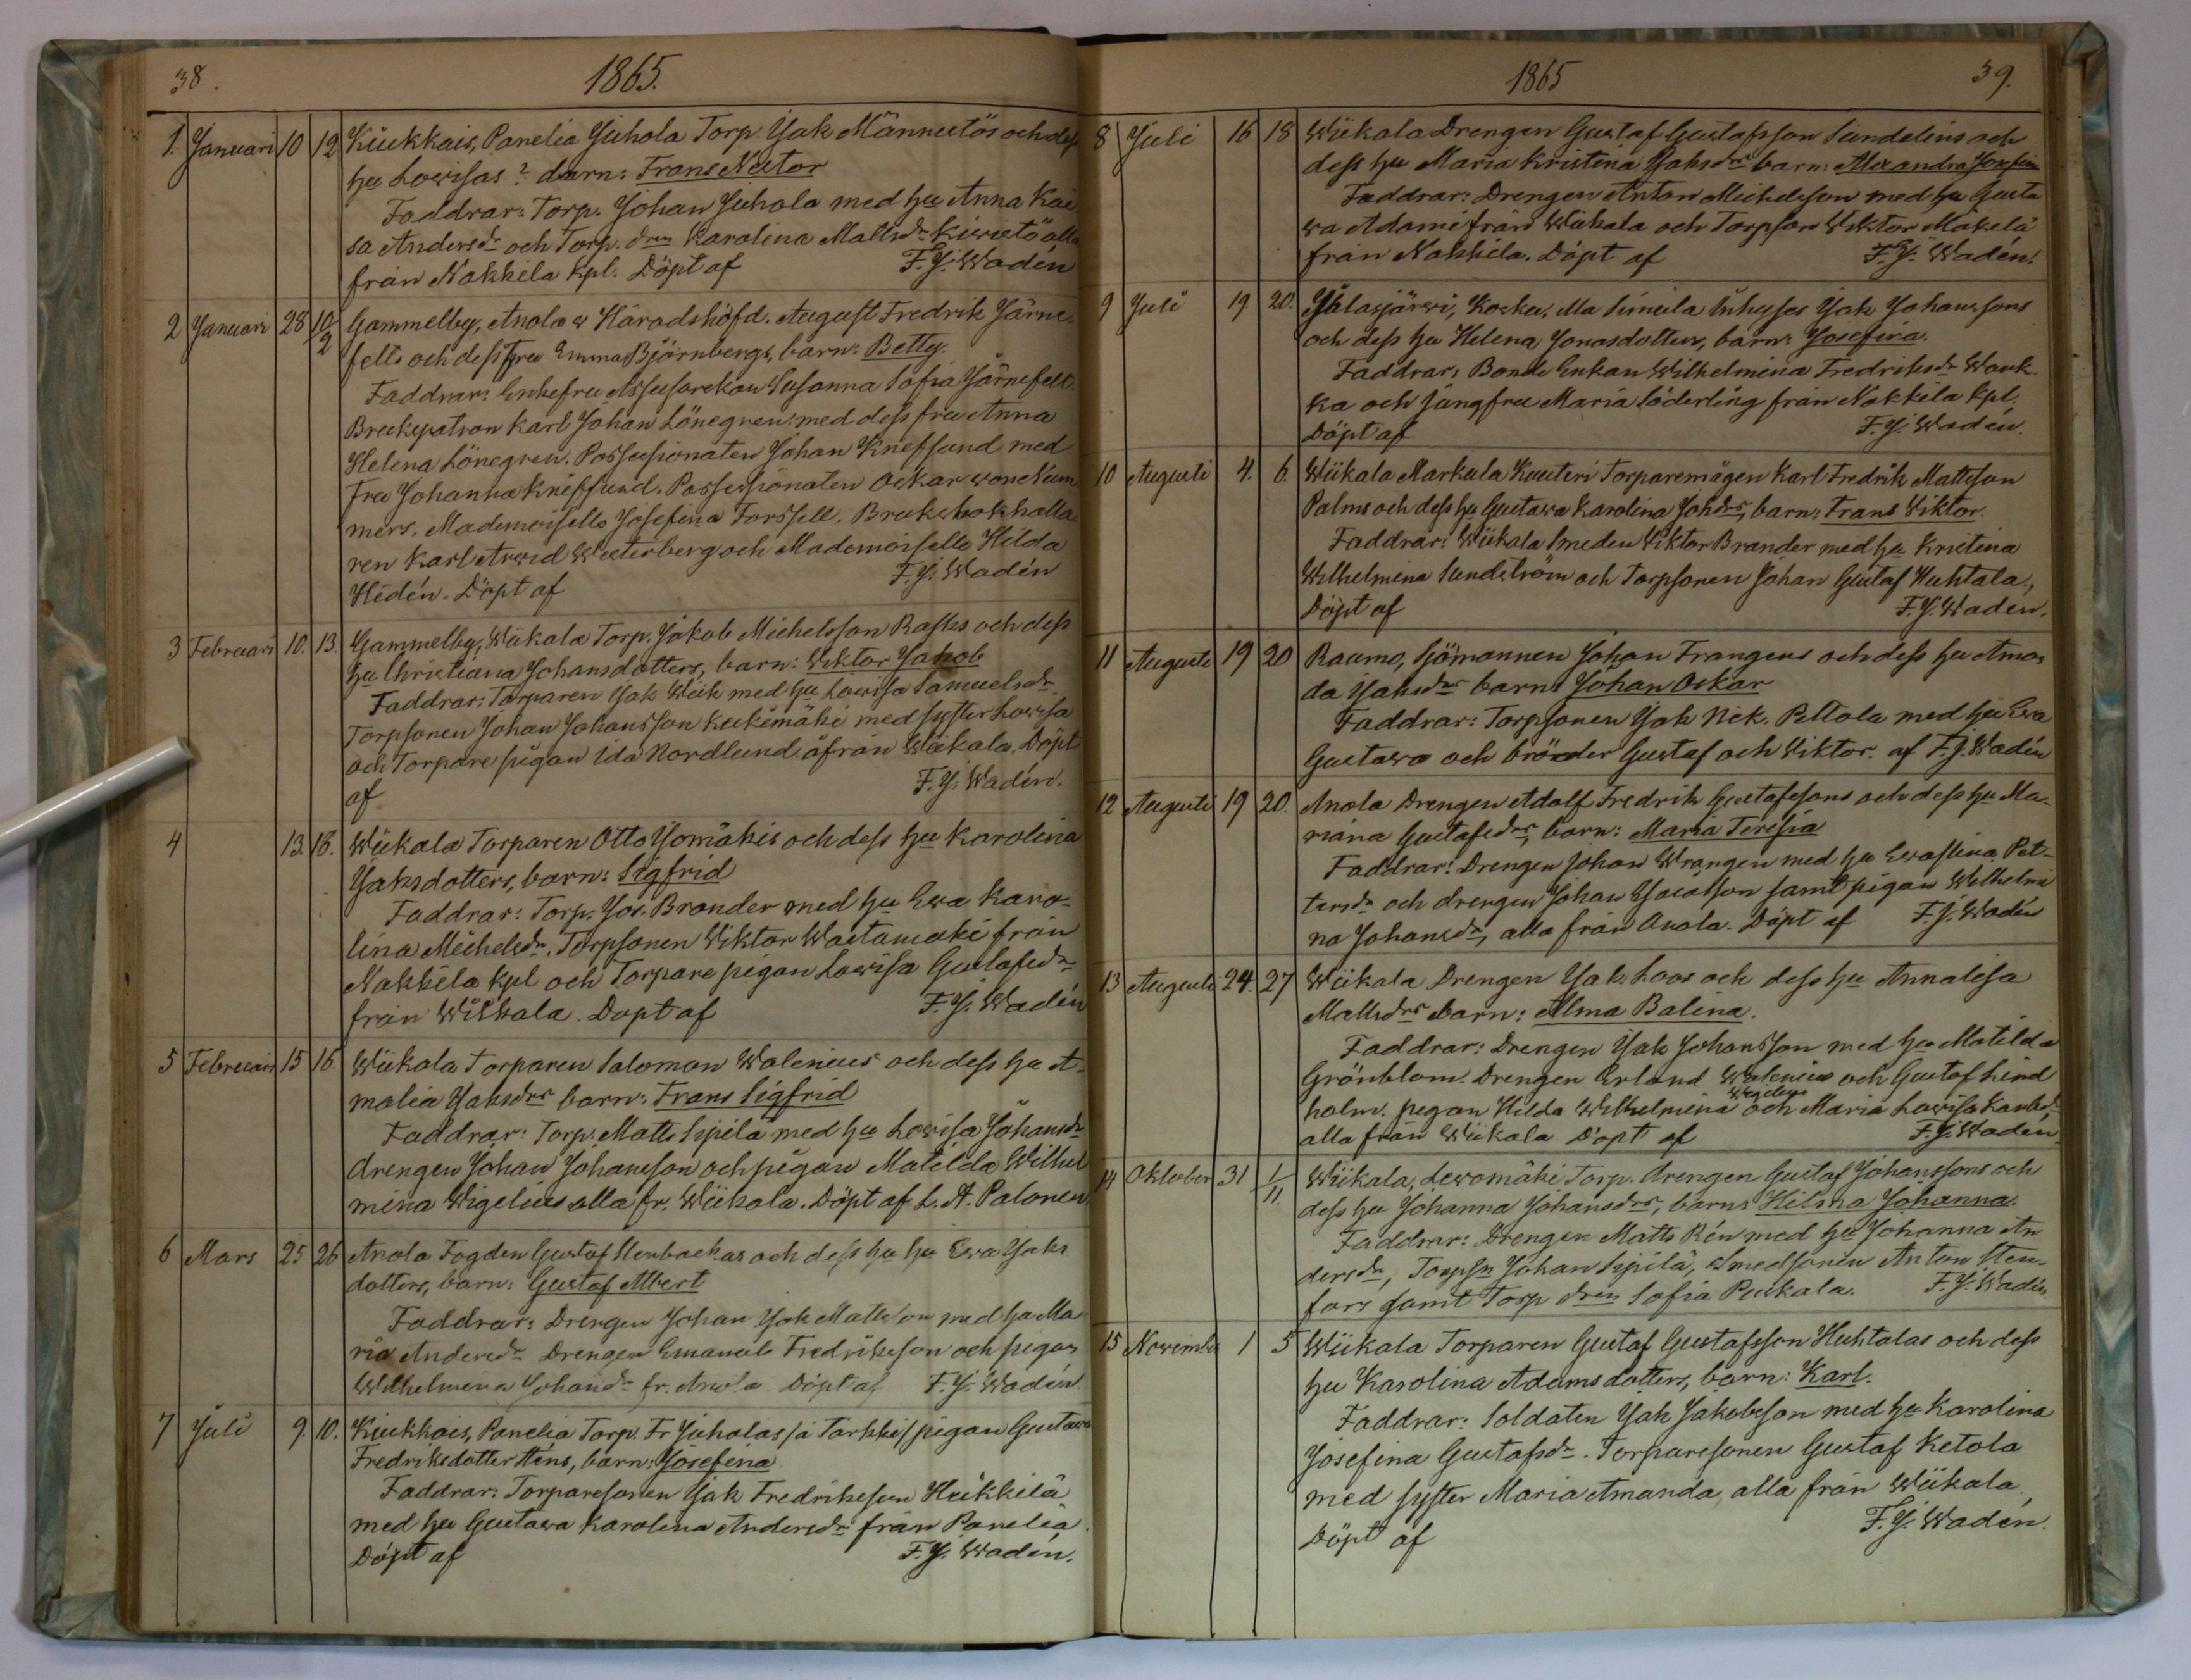 38.
1865.
1. Januari 10 12 Kiukkais, Panelia Juhola Torp. Jak Männistös och dess
hu Lovisas? barn: Frans Nestor
Faddrar: Torp. Johan Juhola med hu Anna Kai
sa Andersdr och Torp. dren Karolina Mattsdr Kivistö alla
från Nakkila Kpl. Döpt af F. J. Wadén
2 Januari 28 10/2 Gammelby, Anola v Häradshöfd. August Fredrik Järne-
felts och dess fru Emma Björnbergs, barn: Betty.
Faddrar: Enkefru Assessorskan Susanna Sofia Järnefelt.
Brukspatron Karl Johan Lönegren med dess fru Anna
Helena Lönegren. Possessionaten Johan Kneffund med
fru Johanna Kneffund. Possessionaten Oskar von Num
mers. Mademoiselle Josefina Forssell. Bruksbokhålla
ren Karl Arvid Westerberg och Mademoiselle Hilda
Hidén. Döpt af F. J. Wadén
3 Februari 10. 13. Gammelby, Wiikala Torp. Jakob Michelsson Rasks och dess
hu Christiana Johansdotters, barn: Viktor Jakob
Faddrar: Torparen Jak Wiik med hu Lovisa Samuelsdr.
Torpsonen Johan Johansson Kukimäki med syster Lovisa
och Torpare pigan Ida Nordlund åfrån Wiikala. Döpt
af F. J. Wadén.
4 13. 18. Wiikala Torparen Otto Jomäkis och dess hu Karolina
Jaksdotters, barn: Sigfrid
Faddrar: Torp. Jos. Brander med hu Eva Karo-
lina Michelsdr. Torpsonen Viktor Wastamäki från
Nakkila kpl och Torpare pigan Lovisa Gustafsdr
från Wiikala. Döpt af F. J. Wadén
5 Februari 15 16. Wiikala Torparen Salomon Walenius och dess hu A-
malia Jaksdrs barn: Frans Sigfrid
Faddrar: Torp. Matts Sipilä med hu Lovisa Johansdr
drengen Johan Johansson och pigan Matilda Wilhel
mina Wigelius alla fr. Wiikala. Döpt af L. A. Palonen
6 Mars 25 26 Anola Fogden Gustaf Storbackas och dess hu hu Eva Jaks
dotters, barn: Gustaf Albert
Faddrar: Drengen Johan Jak Mattsson med hu Ma
ria Andersdr Drengen Emanuel Fredriksson och pigan
Wilhelmina Johansdr fr. Anola. Döpt af F. J. Wadén.
7 Juli 9. 10. Kiukkais, Panelia Torp. Fr Juholas på Tarkki pigan Gustava
Fredriksdotter Sténs, barn: Josefina.
Faddrar: Torparesonen Jak Fredriksson Heikkilä
med hu Gustava Karolina Andersdr från Panelia.
Döpt af F. J. Wadén.
1865
39.
8 Juli 16 18 Wiikala Drengen Gustaf Gustafsson Sundelins och
dess hu Maria Kristina Jaksdrs barn: Alexandra Josefina
Faddrar: Drengen Anton Michelsson med hu Gusta
va Adami från Wiikala och Torpson Viktor Mäkelä
från Nakkila. Döpt af F. J. Wadén.
9 Juli 19 20. Jalasjärvi, Koskue, Ala Simula Inhyses Jak Johanssons
och dess hu Helena Jonasdotters, barn: Josefina.
Faddrar: Bonde Enkan Wilhelmina Fredriksdr Wank
ka och jungfru Maria Söderling från Nakkila Kpl.
Döpt af F. J. Wadén.
10 Augusti 4. 6. Wiikala Markula Kuuteri Torparemågen Karl Fredrik Mattsson
Palms och dess hu Gustava Karolina Johdrs, barn: Frans Viktor.
Faddrar: Wiikala Smeden Viktor Brander med hu Kristina
Wilhelmina Sundström och Torpsonen Johan Gustaf Huhtala,
Döpt af F. J. Wadén.
11 Augusti 19 20 Raumo, Sjömannen Johan Frangens och dess hu Aman
da Jaksdrs barn: Johan Oskar
Faddrar: Torpsonen Jak Nik. Peltola med hu Eva
Gustava och bröder Gustaf och Viktor. af F. J. Wadén
12 Augusti 19 20. Anola Drengen Adolf Fredrik Gustafssons och dess hu Ma-
riana Gustafsdrs, barn: Maria Teresia
Faddrar: Drengen Johan Wrangen med hu Evastina Pet-
tersdr och drengen Johan Isaksson samt pigan Wilhelmi
na Johansdr, alla från Anola. Döpt af F. J. Wadén
13 Augusti 24. 27 Wiikala Drengen Jak. Loos och dess hu Annalisa
Mattsdrs barn: Alma Balina.
Faddrar: Drengen Jak Johansson med hu Matilda
Grönblom. Drengen Erland Walenius och Gustaf Lind
holm. pigan Hilda Wilhelmina Wigelius och Maria Lovisa Karlsdr
alla från Wiikala Döpt af F. J. Wadén.
14 Oktober 31 1/11. Wiikala, Levomäki Torp. Drengen Gustaf Johanssons och
dess hu Johanna Johansdrs, barn: Hilma Johanna.
Faddrar: Drengen Matts Rén med hu Johanna An
dersdr, Torpsn Johan Sipilä, Smedsonen Anton Sten-
fors samt Torp dren Sofia Puskala. F. J. Wadén.
15 November 1 5 Wiikala Torparen Gustaf Gustafsson Huhtalas och dess
hu Karolina Adamsdotters, barn: Karl.
Faddrar: Soldaten Jak Jakobsson med hu Karolina
Josefina Gustafsdr. Torparesonen Gustaf Ketola
med syster Maria Amanda, alla från Wiikala.
Döpt af F. J. Wadén.